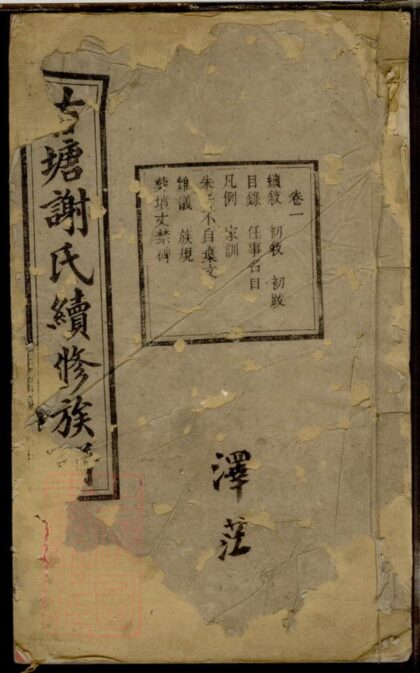 卷一
續敘 初敘 初跋
目錄 任事名目
凡例 家訓
朱子不自棄文
雜儀 族規
墳丈禁碑
澤
古塘謝氏續修族